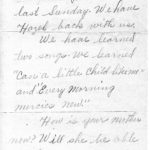 last Sunday. We have
"Hazel" back with us.
We have learned
two songs. We learned
"Can a little Child like me"
and "Every Morning
mercies new."
How is your mother
now? Will she be able